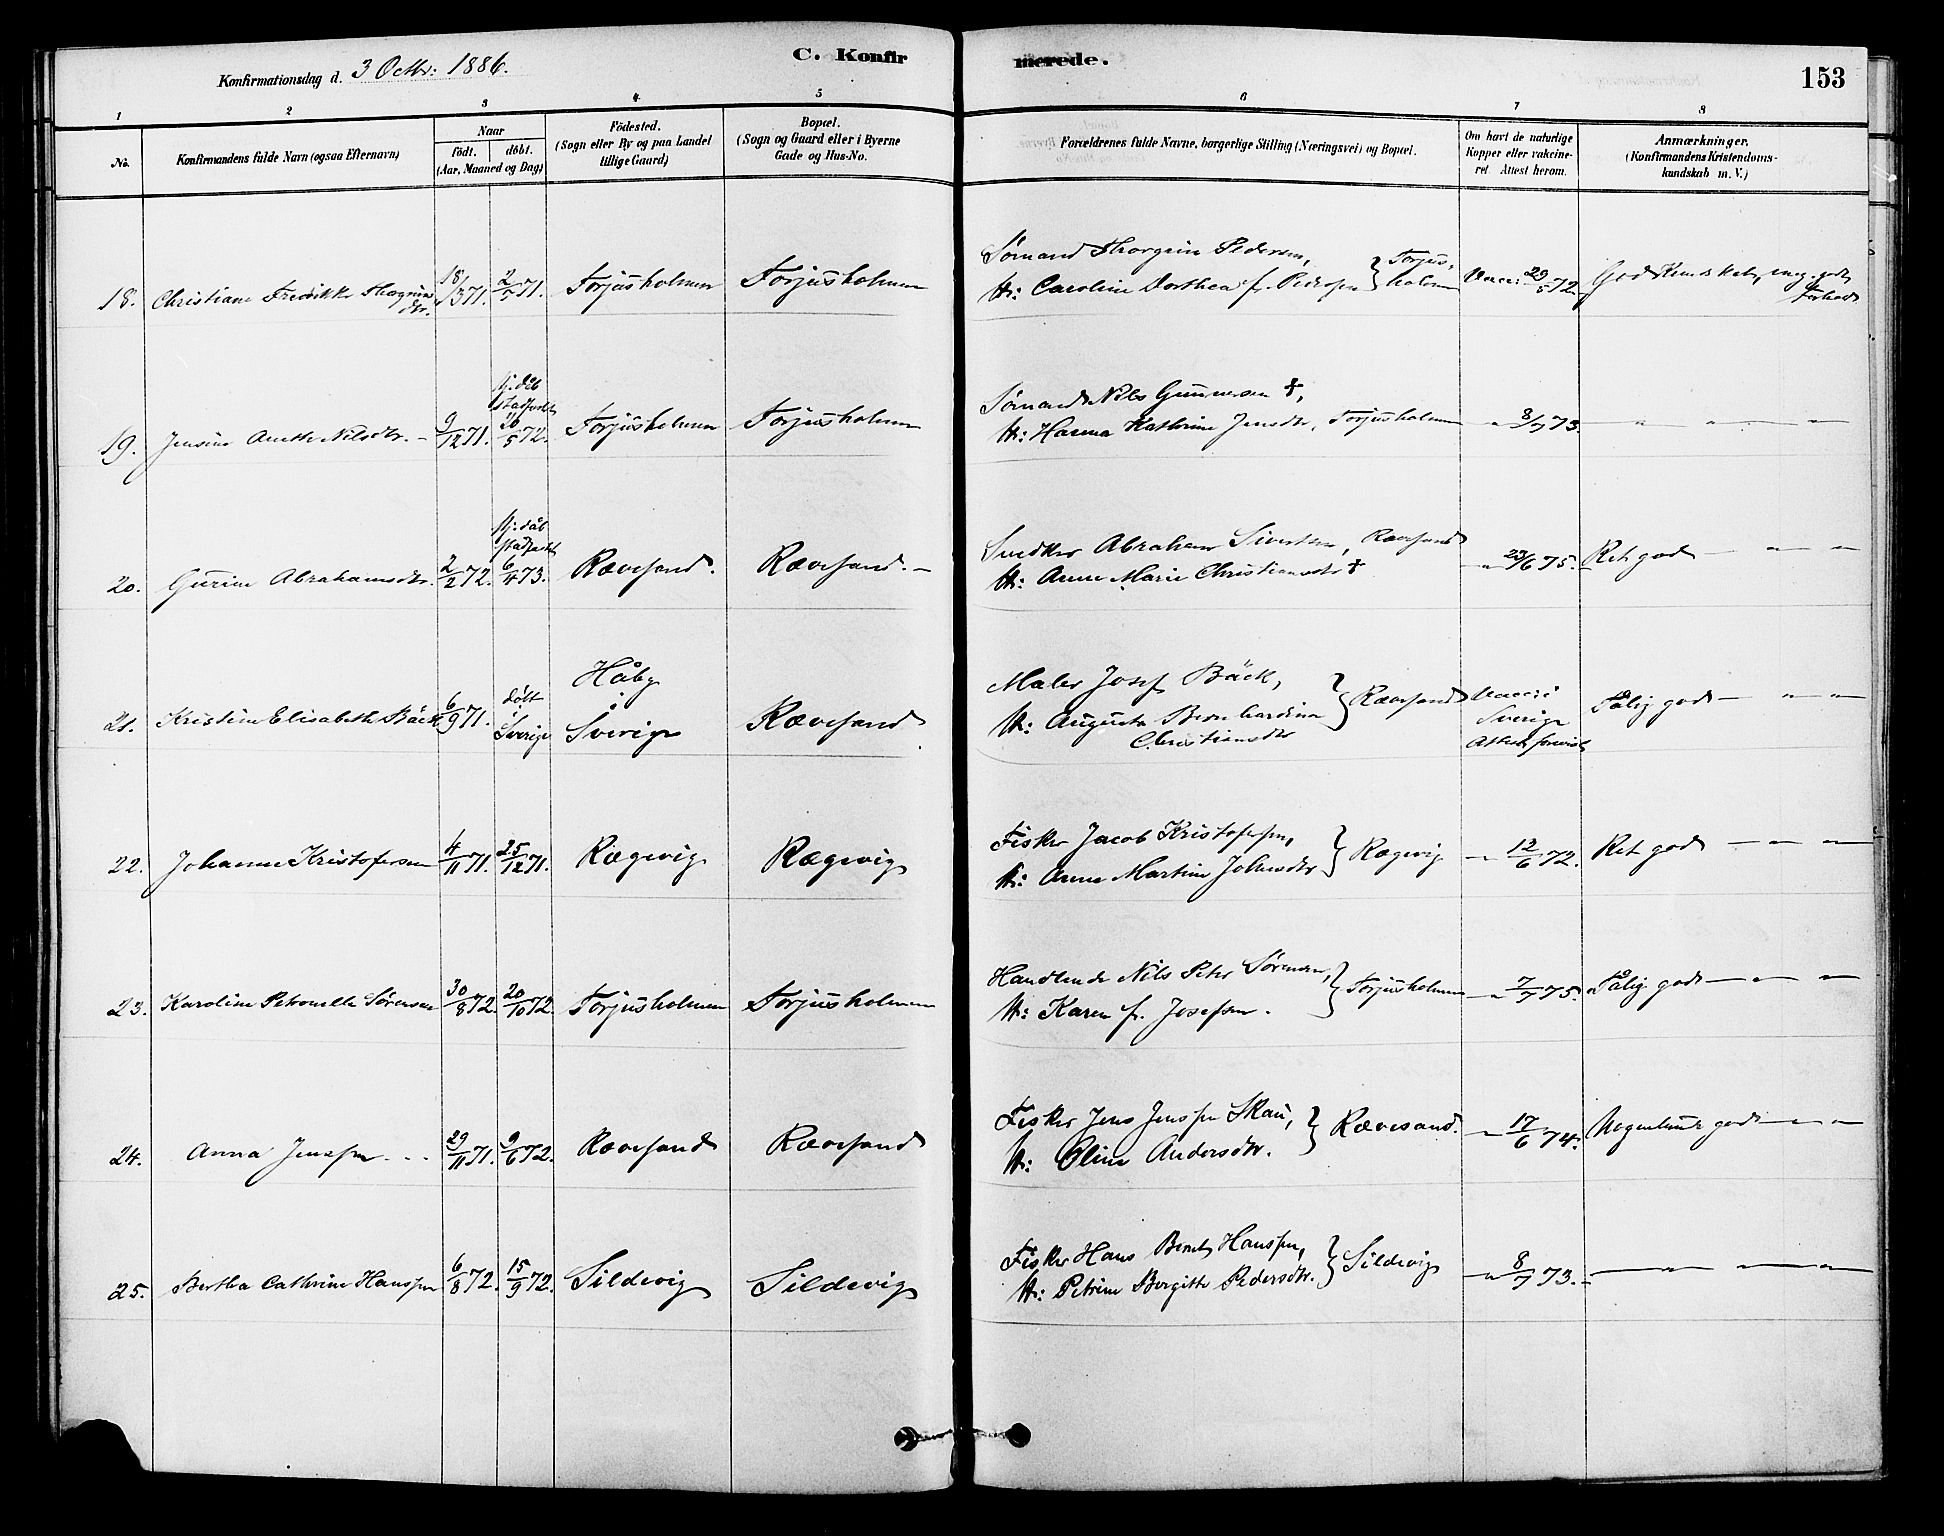 C. Konfirmerede.
153
Konfirmationsdag d. 3 Octbr: 1886.
1 2 3 4 5 6 7 8
No.
Konfirmandens fulde Navn (ogsaa Efternavn)
Naar
födt. döbt.
(Aar, Maaned og Dag)
Födested.
(Sogn eller By og paa Landet
tillige Gaard)
Bopæl.
(Sogn og Gaard eller i Byerne
Gade og Hus-No.
Forældrenes fulde Navne, borgerlige Stilling (Næringsvei) og Bopæl.
Om havt de naturlige
Kopper eller vakcine-
ret. Attest herom.
Anmærkninger.
(Konfirmandens Kristendoms-
kundskab m. V.)
18. Christiane Fredrikke 18/3 71. 2/7 71. Torjusholmen Torjusholmen
Sömand Thorgrim Pedersen,
H: Caroline Dorthea f. Pedersen } Torjusholmen
Vacc: 29/5 72. God Kundskab, meg. godt Forhold
19. Jensine Nilsdtr. - 9/12 71. hj. döb stadfæst 20/5 72. Torjusholmen Torjusholmen
Sömand Nils Gunnersen †,
H: Hanna Kathrine Jensdtr, Torjusholmen
- " - 8/7 73. - " - " - " -
20. Gurine Abrahamsdtr. 2/2 72. hj. dåb stadfæstet 6/4 73. Rævesand. Rævesand. -
Abraham Sivertsen, Rævesand
H: Anne Marie Christiansdtr †
- " - 23/6 75. Ret god - " - " -
21. Kristine Elisabeth Bäck 6/9 71. döbt i Sverige Håby Sverige Rævesand
Maler Josef Bäck,
H: Augusta Bernhardina
Christiansdtr } Rævesand
Vacc: i
Sverige
Attest forevist
Tålig god - " - " -
22. Johanne Kristofersen 4/11 71. 25/12 71. Rægevig Rægevig
Fisker Jacob Kristofersen,
H: Anne Martine Johnsdtr } Rægevig
- " - 12/6 72. Ret god - " - " -
23. Karoline Petronelle Sörensen 30/8 72. 20/10 72. Torjusholmen Torjusholmen
Handlende Nils Peter Sörensen,
H: Karen f. Josefsen. } Torjusholmen
- " - 7/7 75. Tålig god - " - " -
24. Anna Jenssen - - 29/11 71. 9/6 72. Rævesand Rævesand
Fisker Jens Jenssen Skau,
H: Oline Andersdtr. } Rævesand.
- " - 17/6 74. Nogenlunde god - " - " -
25. Bertha Cathrine Hanssen 6/8 72. 15/9 72. Sildevig Sildevig
Fisker Hans Bernt Hanssen,
H: Petrine Bergitte Pedersdtr. } Sildevig
- " - 8/7 73. - " - " - " -